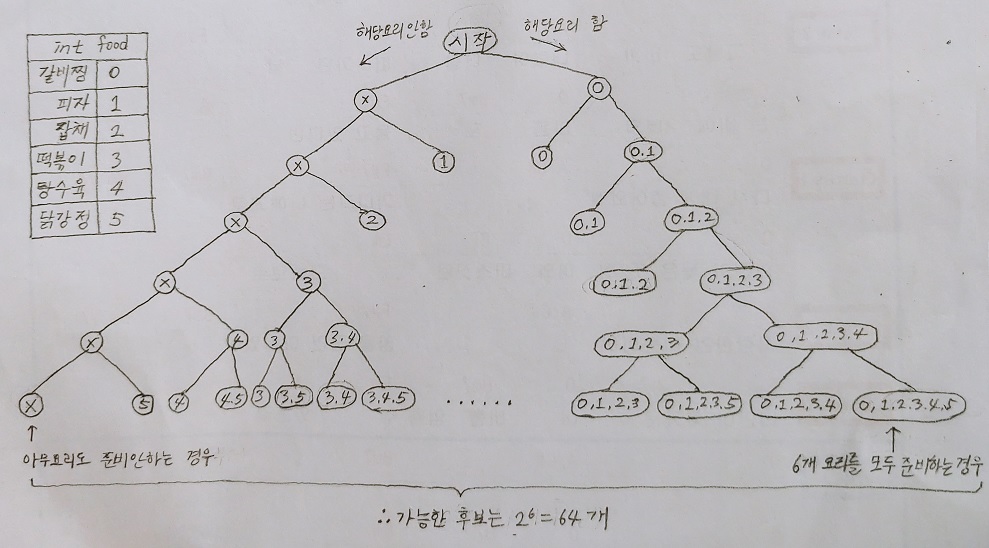 해당요리안함
해당요리 함
시작
int food
갈비찜 0
피자 1
잡채 2
떡볶이 3
탕수육 4
닭강정 5
x 0
x 1 0 0.1
x 2 0,1 0.1,2
x 3 0,1.2 0,1,2,3
x 4 3 3.4 0,1,2,3 0,1.2.3.4
x 5 4 4.5 3 3.5 3,4 3,4.5 ...... 0,1,2,3 0,1,2,3,5 0,1,2,3,4 0,1,2.3.4.5
↑ ↑
아무요리도 준비안하는 경우
6개 요리를 모두 준비하는경우
∴ 가능한 후보는 2⁶ = 64 개